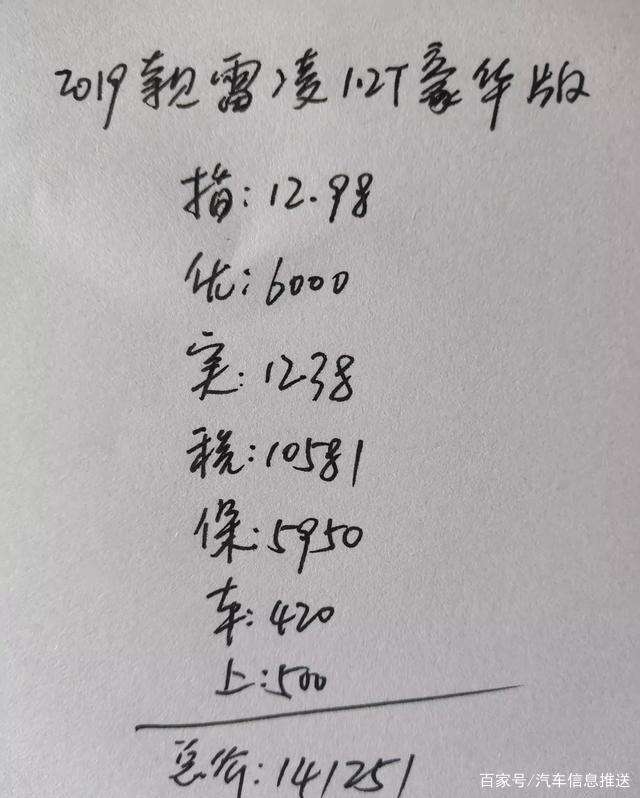 2019款雷凌1.2T豪华版
指:12.98
优:6000
实:12.38
税:10581
保:5950
车:420
上:500
总价:141251
百家号/汽车信息推送